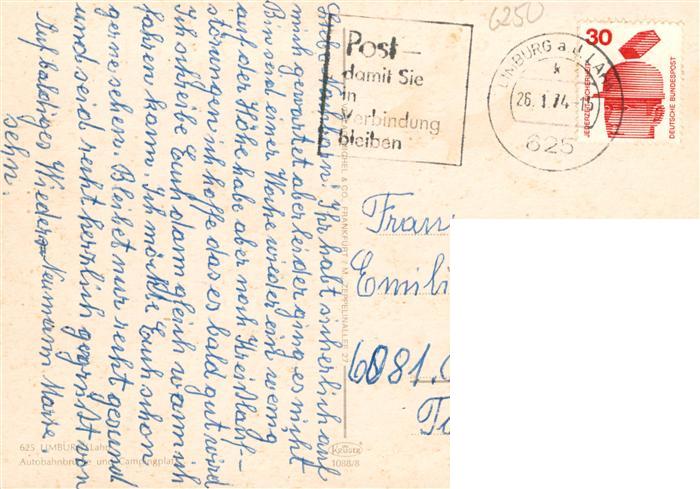 Ihr habt sicherlich auf
mich gewartet aber leider ging es nicht
Bin nun einer Woche wieder ein wenig
auf der Höhe habe aber noch Kreislauf-
störungen ich hoffe das es bald gut wird
Ich schreibe Euch dann gleich wann ich
fahren kann. Ich möchte Euch schon
gerne sehen. Bleibet nur recht gesund
und seid recht herzlich gegrüßt von
Auf baldiges Wieder- Neumann Marie.
sehn.
Post-
damit Sie
in
Verbindung
bleiben
6250
LIMBURG a.d. LAHN
k
26.1.74-15
625
30
JEDERZEIT SICHERHEIT
DEUTSCHE BUNDESPOST
& CO., FRANKFURT / M. ZEPPELINALLEE 27
Frau
Emili
6081
625 LIMBURG/Lahn
Autobahnbrücke und Campingplatz
Krüger
1088/8